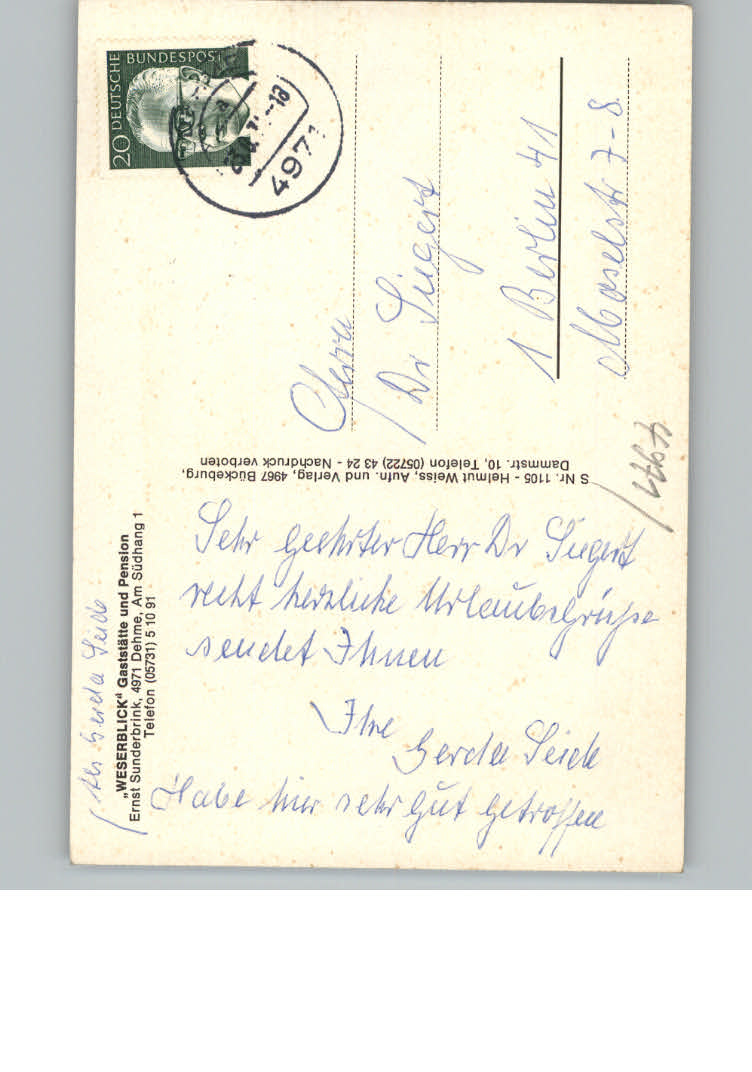 Abs Gerda Seide
„WESERBLICK“ Gaststätte und Pension
Ernst Sunderbrink, 4971 Dehme, Am Südhang 1
Telefon (05731) 5 10 91
Sehr geehrter Herr Dr Siegert
recht herzliche Urlaubsgrüße
sendet Ihnen
Ihre
Gerda Seide
Habe hier sehr gut getroffen
S Nr. 1105 - Helmut Weiss, Aufn. und Verlag, 4967 Bückeburg,
Dammstr. 10, Telefon (05722) 43 24 - Nachdruck verboten
20 DEUTSCHE BUNDESPOST
4971
-18
Herrn
Dr Siegert
1 Berlin 41
Moselstr 7-8